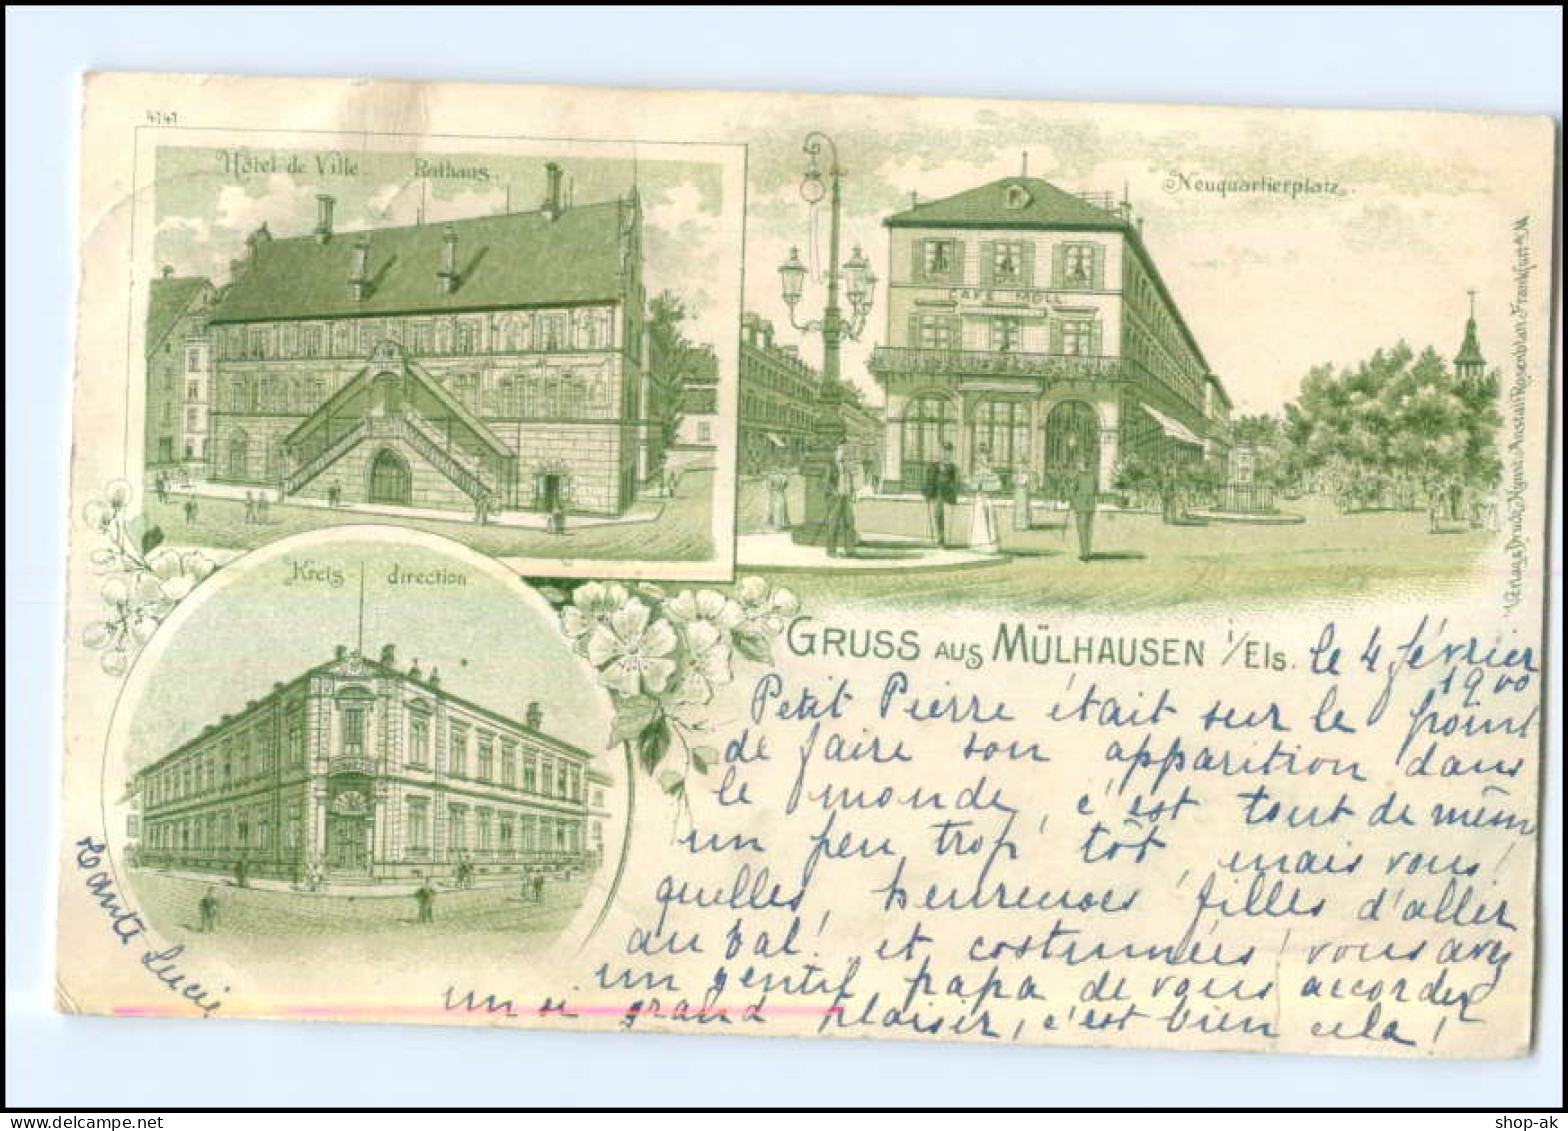 4141
Hôtel de Ville. Rathaus.
Neuquartierplatz.
CAFE MOLL
Kreis direction
Verlag & Druck Kunst-Anstalt Rosenblatt, Frankfurt a/M.
GRUSS AUS MÜLHAUSEN i/Els.
le 4 février
1900
Petit Pierre était sur le point
de faire son apparition dans
le monde, c'est tout de mêm
un peu trop tôt, mais vous!
quelles heureuses filles d'aller
au bal! et costumées! vous avez
un gentil papa de vous accorder
un si grand plaisir, c'est bien cela!
Tante Lucie
shop-ak